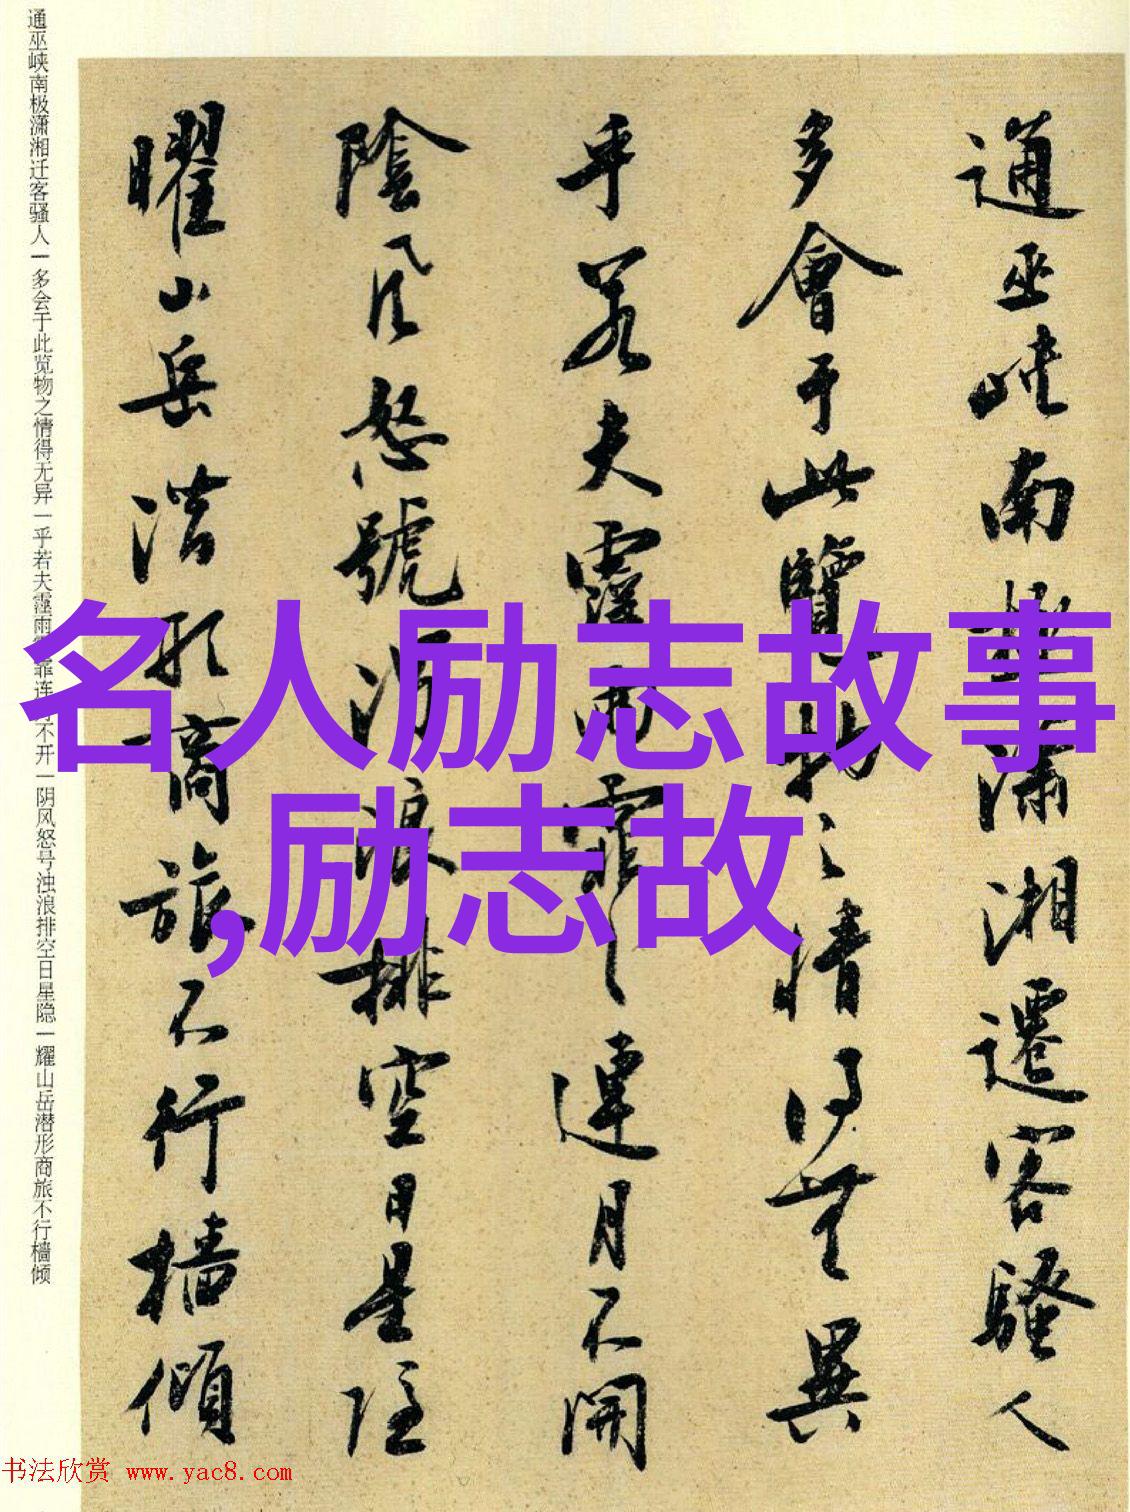 通巫峡南极潇湘迁客骚人一多会于此览物之情得无异一乎若夫霪雨霏霏连月不开一阴风怒号浊浪排空日星隐一耀山岳潜形商旅不行樯倾
通巫峽南極瀟湘遷客騷人
多會于此覽物之情得無異
乎若夫霪雨霏霏連月不開
陰風怒號濁浪排空日星隱
曜山岳潛形商旅不行檣傾
名人励志故事
,励志故
书法欣赏 www.yac8.com